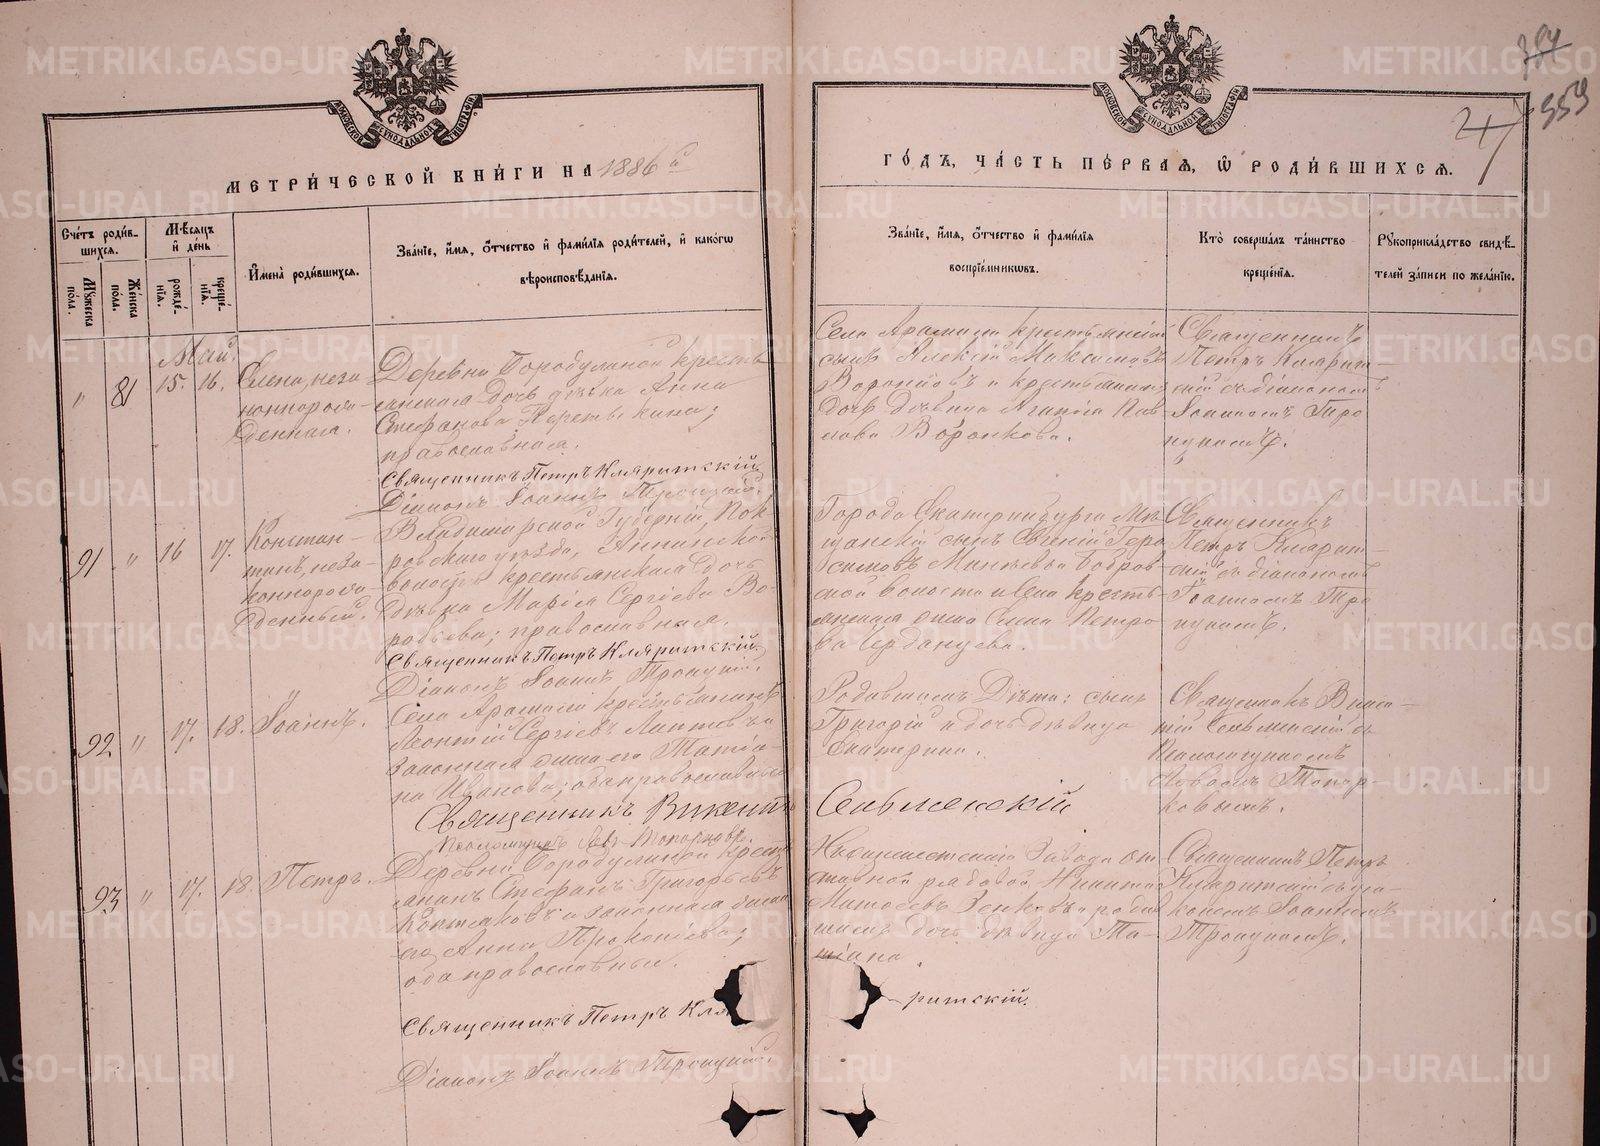 МЕТРИЧЕСКОЙ КНИГИ НА 1886 й
ГОДЪ, ЧАСТЬ ПЕРВАЯ, Ѡ РОДИВШИХСЯ.
МОСКОВСКОЙ СѴНОДАЛЬНОЙ ТИПОГРАФІИ
МОСКОВСКОЙ СѴНОДАЛЬНОЙ ТИПОГРАФІИ
559
Счетъ родив-
шихся.
Мужеска пола.
Женска пола.
Мѣсяцъ и день
рожде-
нія.
креще-
нія.
Имена родившихся.
Званіе, имя, отчество и фамилія родителей, и какогѡ
вѣроисповѣданія.
Званіе, имя, отчество и фамилія
воспріемниковъ.
Кто совершалъ таинство
крещенія.
Рукоприкладство свидѣ-
телей записи по желанію.
Май.
" 81 15. 16.
Елена, неза-
коннорож-
денная.
Деревни Бородулиной кресть-
янская дочь дѣвка Анна
Стефанова
православная.
Священникъ Петръ Кляритскій.
Діаконъ Іоаннъ Троицкій.
Села Арамили крестьянскій
сынъ Алексій Максимовъ
Воронковъ и крестьянская
дочь дѣвица Агапія Пав-
лова Воронкова.
Священникъ
Петръ Клярит-
скій съ діакономъ
Іоанномъ Тро-
ицкимъ.
91 " 16 17.
Констан-
тинъ, неза-
коннорож-
денный.
Владимірской Губерніи, Пок-
ровскаго уѣзда, Аннинской
волости крестьянская дочь
дѣвка Марія Сергіева Во-
робьева; православная.
Священникъ Петръ Кляритскій.
Діаконъ Іоаннъ Троицкій.
Города Екатеринбурга Мѣ-
щанскій сынъ Евгеній Гера-
симовъ
волости села кресть-
янская жена Елена Петро-
ва
Священникъ
Петръ Клярит-
скій съ діакономъ
Іоанномъ Тро-
ицкимъ.
92 " 17. 18. Іоаннъ.
Села Арамили крестьянинъ
Леонтій Сергіевъ Лаптевъ и
законная жена его Татіа-
на Иванова; оба православные
Священникъ Викентій
Сельменскій
Псаломщикъ Левъ Топорковъ.
Родившимъ Дѣти: сынъ
Григорій и дочь дѣвица
Екатерина.
Священникъ Викен-
тій Сельменскій съ
Псаломщикомъ
Львомъ Топор-
ковымъ.
93 " 17. 18. Петръ.
Деревни Бородулиной кресть-
янинъ Стефанъ Григорьевъ
Коптяковъ и законная жена
его Анна Прокопіева;
оба православные.
Священникъ Петръ Кля-
ритскій.
Діаконъ Іоаннъ Троицкій.
Завода от-
ставной рядовой Никита
Матвеевъ Зенковъ и родив-
шимъ дочь дѣвица Та-
тіана.
Священникъ Петръ
Кляритскій съ діа-
кономъ Іоанномъ
Троицкимъ.
METRIKI.GASO-URAL.RU